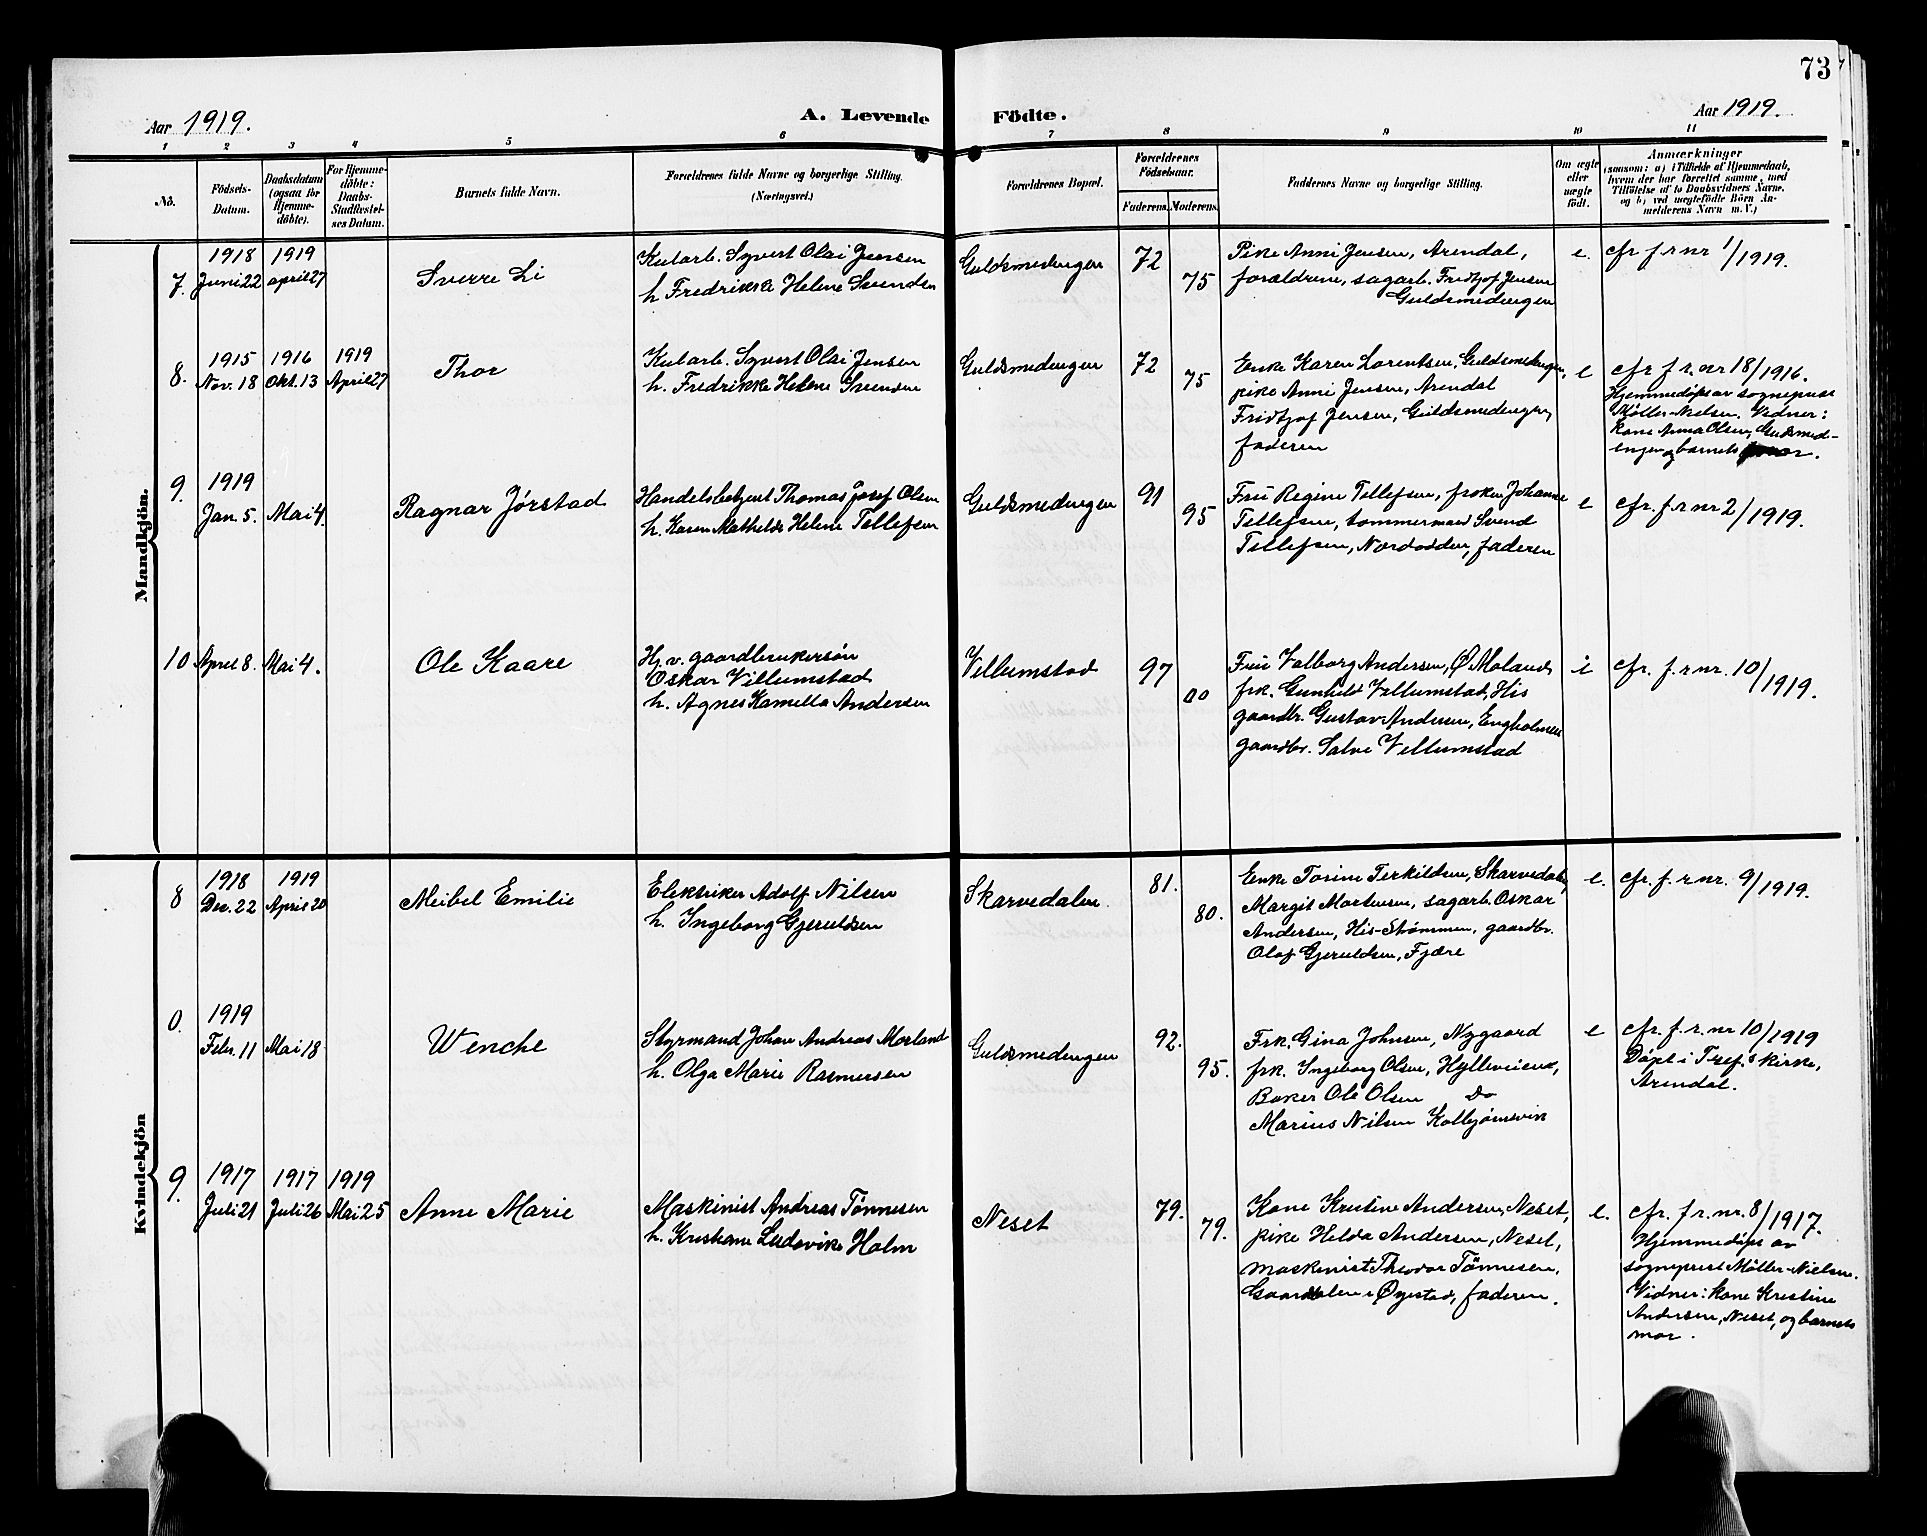 73
Aar 1919.
A. Levende Födte.
Aar 1919.
1 2 3 4 5 6 7 8 9 10 11
No.
Födsels-
Datum.
Daabsdatum
(ogsaa for
Hjemme-
döbte).
For Hjemme-
döbte:
Daabs-
Stadfæstel-
ses Datum.
Barnets fulde Navn.
Forældrenes fulde Navne og borgerlige Stilling.
(Næringsvei.)
Forældrenes Bopæl.
Forældrenes
Födselsaar.
Faderens. Moderens.
Faddernes Navne og borgerlige Stilling.
Om ægte
eller
uægte
födt.
Anmærkninger
(saasom: a) i Tilfælde af Hjemmedaab,
hvem der har forrettet samme, med
Tilföielse af to Daabsvidners Navne.
og b) ved uægtefödte Börn An-
melderens Navn m. V.)
Mandkjön.
7. 1918 Juni 22 1919 april 27
Sverre Li
Kularb. Syvert Olai Jensen
h. Fredrikke Helene Svendsen
Guldsmedengen
72 75
Pike Anni Jensen, Arendal,
forældrene, sagarb. Fridtjof Jensen
Guldsmedengen
e.
cfr f.r nr 1/1919.
8. 1915 Nov. 18 1916 Okt. 13 1919 April 27
Thor
Kularb. Syvert Olai Jensen
h. Fredrikke Helene Svensen
Guldsmedengen
72 75
Enke Karen Lorentsen, Guldsmedengen,
pike Anni Jensen, Arendal
Fridtjof Jensen, Guldsmedengen,
faderen
e
cfr f. r. nr 18/1916.
Hjemmedøpt av sogneprest
Møller-Nielsen. Vidner:
kone Anna Olsen, Guldsmed-
engen og barnets
9. 1919 Jan. 5. Mai 4.
Ragnar Jørstad
Handelsbetjent Thomas Josef Olsen
h. Karen Mathilde Helene Tellefsen
Guldsmedengen
91 95
Fru Regine Tellefsen, frøken Johanne
Tellefsen, tømmermand Svend
Tellefsen, Nordodden, faderen
e
cfr. f. r nr 2/1919.
10 April 8. Mai 4.
Ole Kaare
Hj. v. gaardbrukersøn
Oskar Villumstad
h. Agnes Kamilla Andersen
Villumstad
97 00
Fru Valborg Andersen, Ø Moland,
frk. Gunhild Villumstad, His
gaardbr. Gustav Andersen, Engholmen
gaardbr. Salve Villumstad
e
cfr. f. r nr. 10/1919.
Kvindekjön
8 1918 Dec. 22 1919 April 20
Meibel Emilie
Elektriker Adolf Nilsen
h. Ingeborg Gjeruldsen
Skarvedalen.
81. 80.
Enke Torine Terkildsen, Skarvedalen,
Margit Mortensen, sagarb. Oskar
Andersen, His-Strømmen, gaardbr.
Olaf Gjeruldsen, Fjære
e.
cfr. f. r nr. 9/1919.
0. 1919 Febr. 11 Mai 18
Wenche
Styrmand Johan Andreas Morland
h. Olga Marie Rasmussen
Guldsmedengen
92. 95.
Frk. Gina Johnsen, Nygaard
frk. Ingeborg Olsen, Hylleveiene,
Baker Ole Olsen Do
Marius Nilsen Kolbjørnsvik
e
cfr. f. r. nr 10/1919
Døpt i Tref.s kirke,
Arendal.
9. 1917 Juli 21 1917 Juli 26 1919 Mai 25
Anne Marie
Maskinist Andreas Tønnesen
h. Kristiane Ludovike Holm
Neset
79. 79.
Kone Kristine Andersen, Neset,
pike Helda Andersen, Neset,
maskinist Theodor Tønnesen,
Gaarddalen i Øyestad, faderen.
e.
cfr. f r. nr. 8/1917.
Hjemmedøpt av
sogneprest Møller-Nielsen.
Vidner: kone Kristine
Andersen, Neset, og barnets
mor.